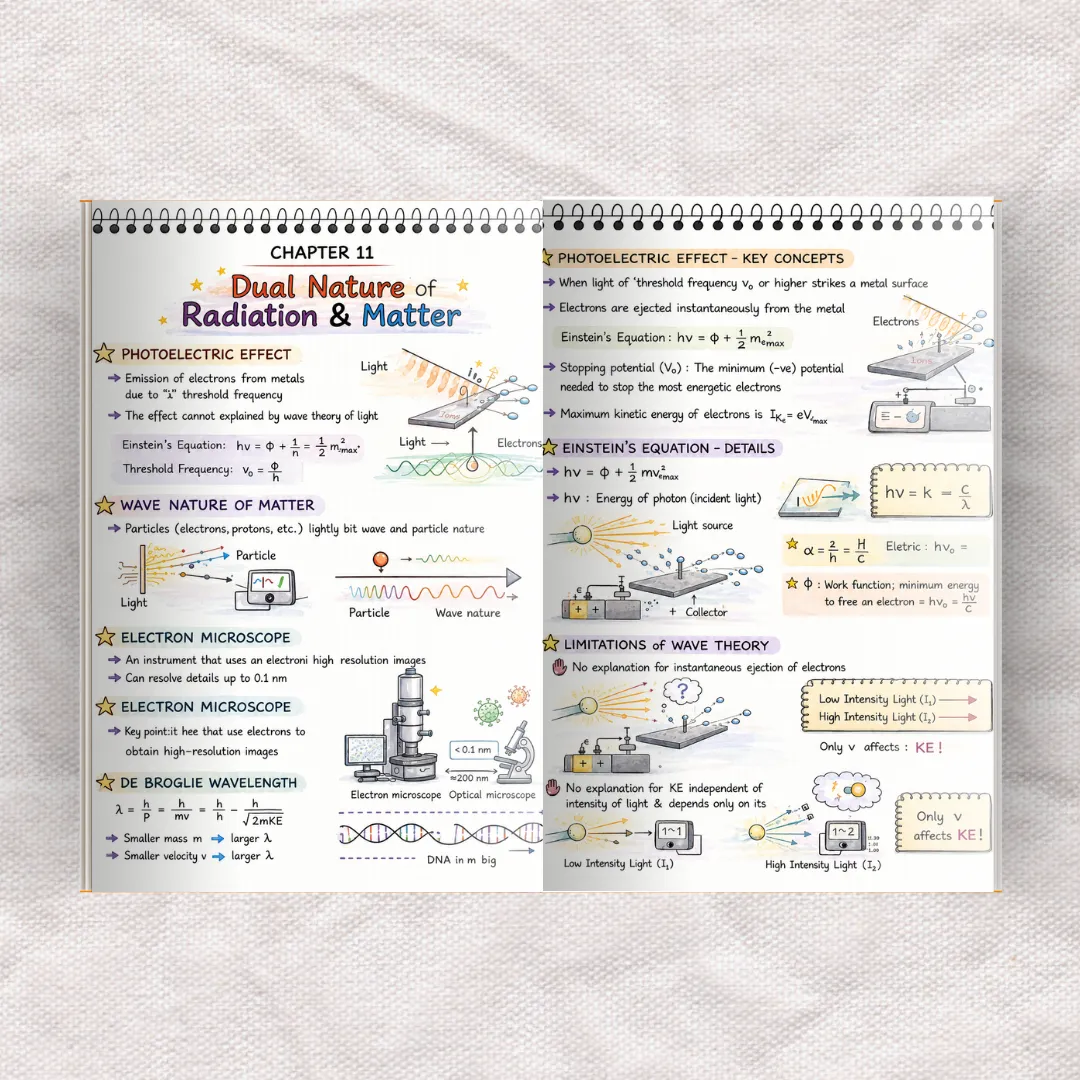 CHAPTER 11
Dual Nature of
Radiation & Matter
PHOTOELECTRIC EFFECT
Light
→ Emission of electrons from metals
due to "i" threshold frequency
→ The effect cannot explained by wave theory of light
Light →
Electrons
Einstein's Equation: hv = Φ + 1/n = 1/2 m²max.
Threshold Frequency: v₀ = Φ/h
WAVE NATURE OF MATTER
→ Particles (electrons, protons, etc.) lightly bit wave and particle nature
Particle
Light
Particle
Wave nature
ELECTRON MICROSCOPE
→ An instrument that uses an electroni high resolution images
→ Can resolve details up to 0.1 nm
ELECTRON MICROSCOPE
→ Key point:it hee that use electrons to
obtain high-resolution images
< 0.1 nm
≈200 nm
Electron microscope
Optical microscope
DE BROGLIE WAVELENGTH
λ = h/P = h/mv = h/h - h/√2mKE
→ Smaller mass m → larger λ
→ Smaller velocity v → larger λ
DNA in m big
PHOTOELECTRIC EFFECT - KEY CONCEPTS
→ When light of 'threshold frequency v₀ or higher strikes a metal surface
→ Electrons are ejected instantaneously from the metal
Electrons
Einstein's Equation: hv = Φ + 1/2 m²emax
→ Stopping potential (V₀) : The minimum (-ve) potential
needed to stop the most energetic electrons
→ Maximum kinetic energy of electrons is
EINSTEIN'S EQUATION - DETAILS
→ hv = Φ + 1/2 mv²emax
→ hv : Energy of photon (incident light)
λ
hv = k = C/λ
Light source
α = 2/h = H/C
Eletric : hv₀ =
Φ : Work function; minimum energy
to free an electron = hv₀ = hv/C
+ +
+ Collector
LIMITATIONS of WAVE THEORY
No explanation for instantaneous ejection of electrons
?
Low Intensity Light (I₁) →
High Intensity Light (I₂) →
Only v affects : KE!
+ +
No explanation for KE independent of
intensity of light & depends only on its
1~1
1~2
Only v
affects KE!
Low Intensity Light (I₁)
High Intensity Light (I₂)